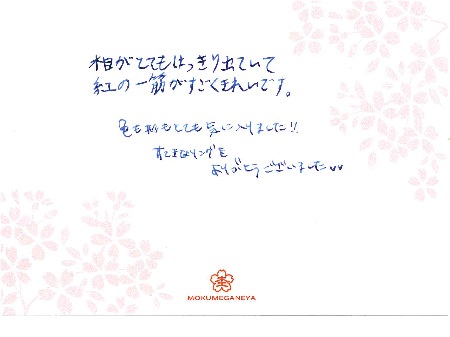 木目がとてもはっきり出ていて
紅の一筋がすごくきれいです。
色も形もとても気に入りました!!
すてきなリングを
ありがとうございました♥♥
MOKUMEGANEYA